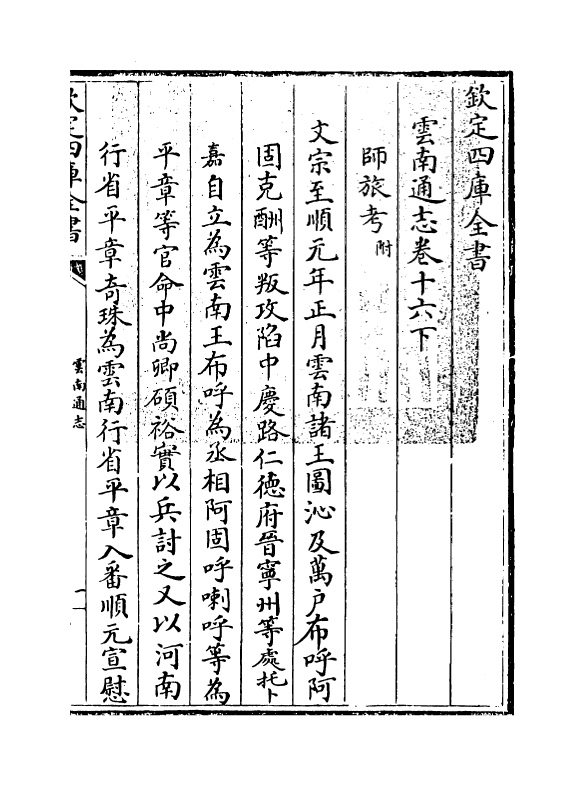 欽定四庫全書
雲南通志卷十六下
師旅考附
文宗至順元年正月雲南諸王圖沁及萬户布呼阿
固克酬等叛攻陷中慶路仁德府晉寧州等處托卜
嘉自立為雲南王布呼為丞相阿固呼喇呼等為
平章等官命中尚卿碩裕實以兵討之又以河南
行省平章奇珠為雲南行省平章入番順元宣慰
欽定四庫全書
雲南通志